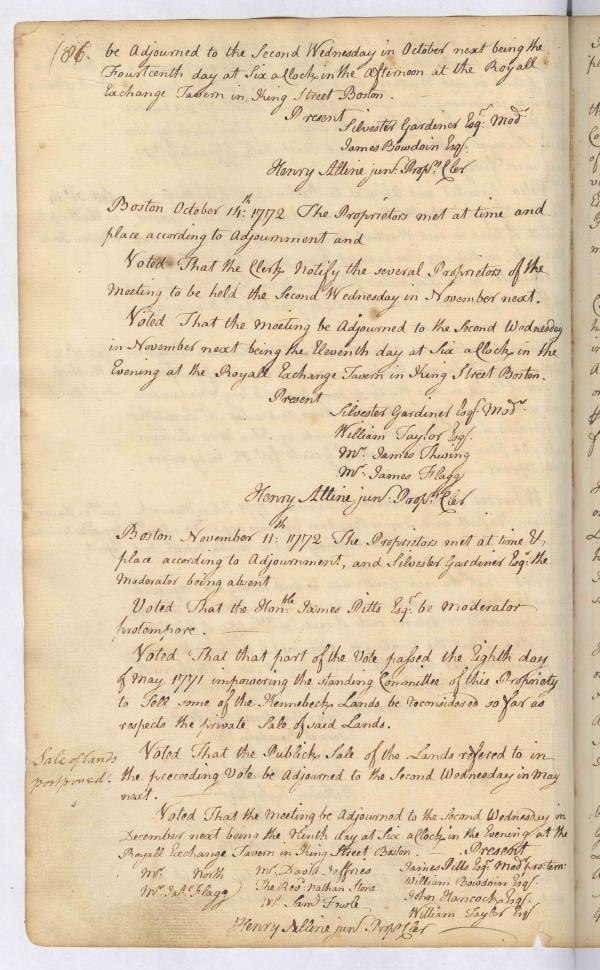 186.
be Adjourned to the Second Wednesday in October next being the
Fourteenth day at Six aClock in the Afternoon at the Royall
Exchange Tavern in King Street Boston.
Present
Silvester Gardiner Esqr. Modr.
James Bowdoin Esq.
Henry Alline junr. Proprs. Cler
Boston October 14th: 1772 The Proprietors met at time and
place according to Adjournment and
Voted That the Clerk Notify the several Proprietors of the
Meeting to be held the Second Wednesday in November next.
Voted That the Meeting be Adjourned to the Second Wednesday
in November next being the Eleventh day at Six aClock in the
Evening at the Royall Exchange Tavern in King Street Boston.
Present
Silvester Gardiner Esqr. Modr.
William Taylor Esq.
Mr. James Thwing
Mr. James Flagg
Henry Alline junr. Proprs. Cler
Boston November 11th: 1772 The Proprietors met at time &
place according to Adjournment, and Silvester Gardiner Esqr. the
Moderator being absent
Voted That the Honble. James Pitts Esqr. be Moderator
protempore.
Voted That that part of the Vote passed the Eighth day
of May 1771 impowering the standing Committee of this Propriety
to Sell some of the Kennebeck Lands be reconsidered so far as
respects the private Sale of said Lands.
Sale of lands
postponed.
Voted That the Publick Sale of the Lands refered to in
the preceeding Vote be Adjourned to the Second Wednesday in May
next.
Voted That the Meeting be Adjourned to the Second Wednesday in
December next being the Ninth day at Six aClock in the Evening at the
Royall Exchange Tavern in King Street Boston. Present
Mr. North Mr. David Jeffries James Pitts Esqr. Modr. protem
Mr. Jas. Flagg The Revd. Nathan Stone William Bowdoin Esq.
Mr. Saml. Fowle John Hancock Esq.
William Taylor Esq.
Henry Alline junr. Proprs. Cler